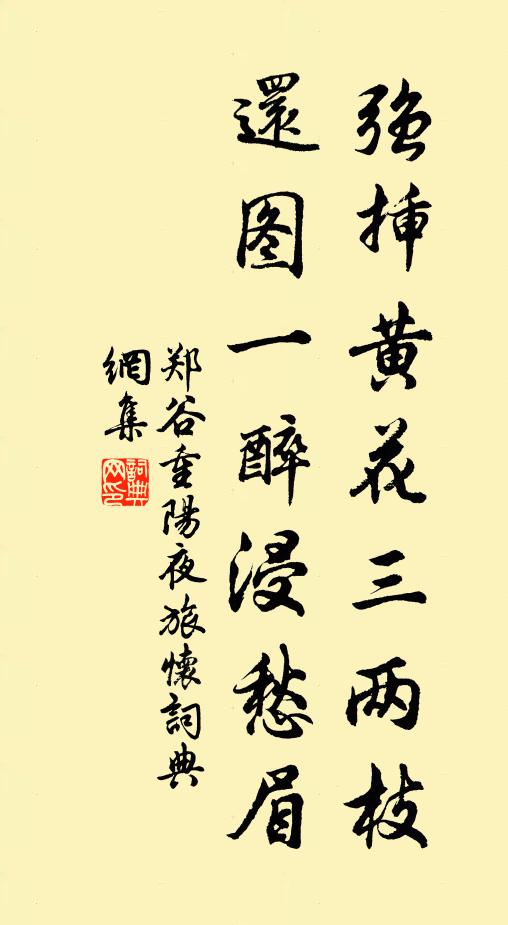 强插黄花三两枝
還图一醉浸愁眉
郑谷重陽夜旅懷詞典
網集
詞典網印